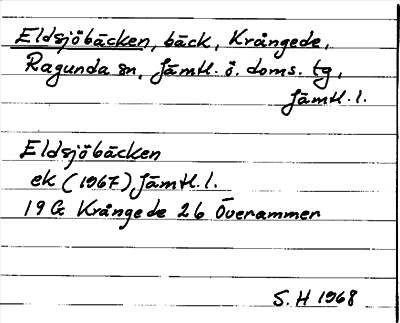 Eldsjöbäcken, bäck, Krångede,
Ragunda sn, Jämtl. ö. doms. tg,
Jämtl. l.
Eldsjöbäcken
ek (1967) Jämtl. l.
19G Krångede 26 Överammer
S. H 1968